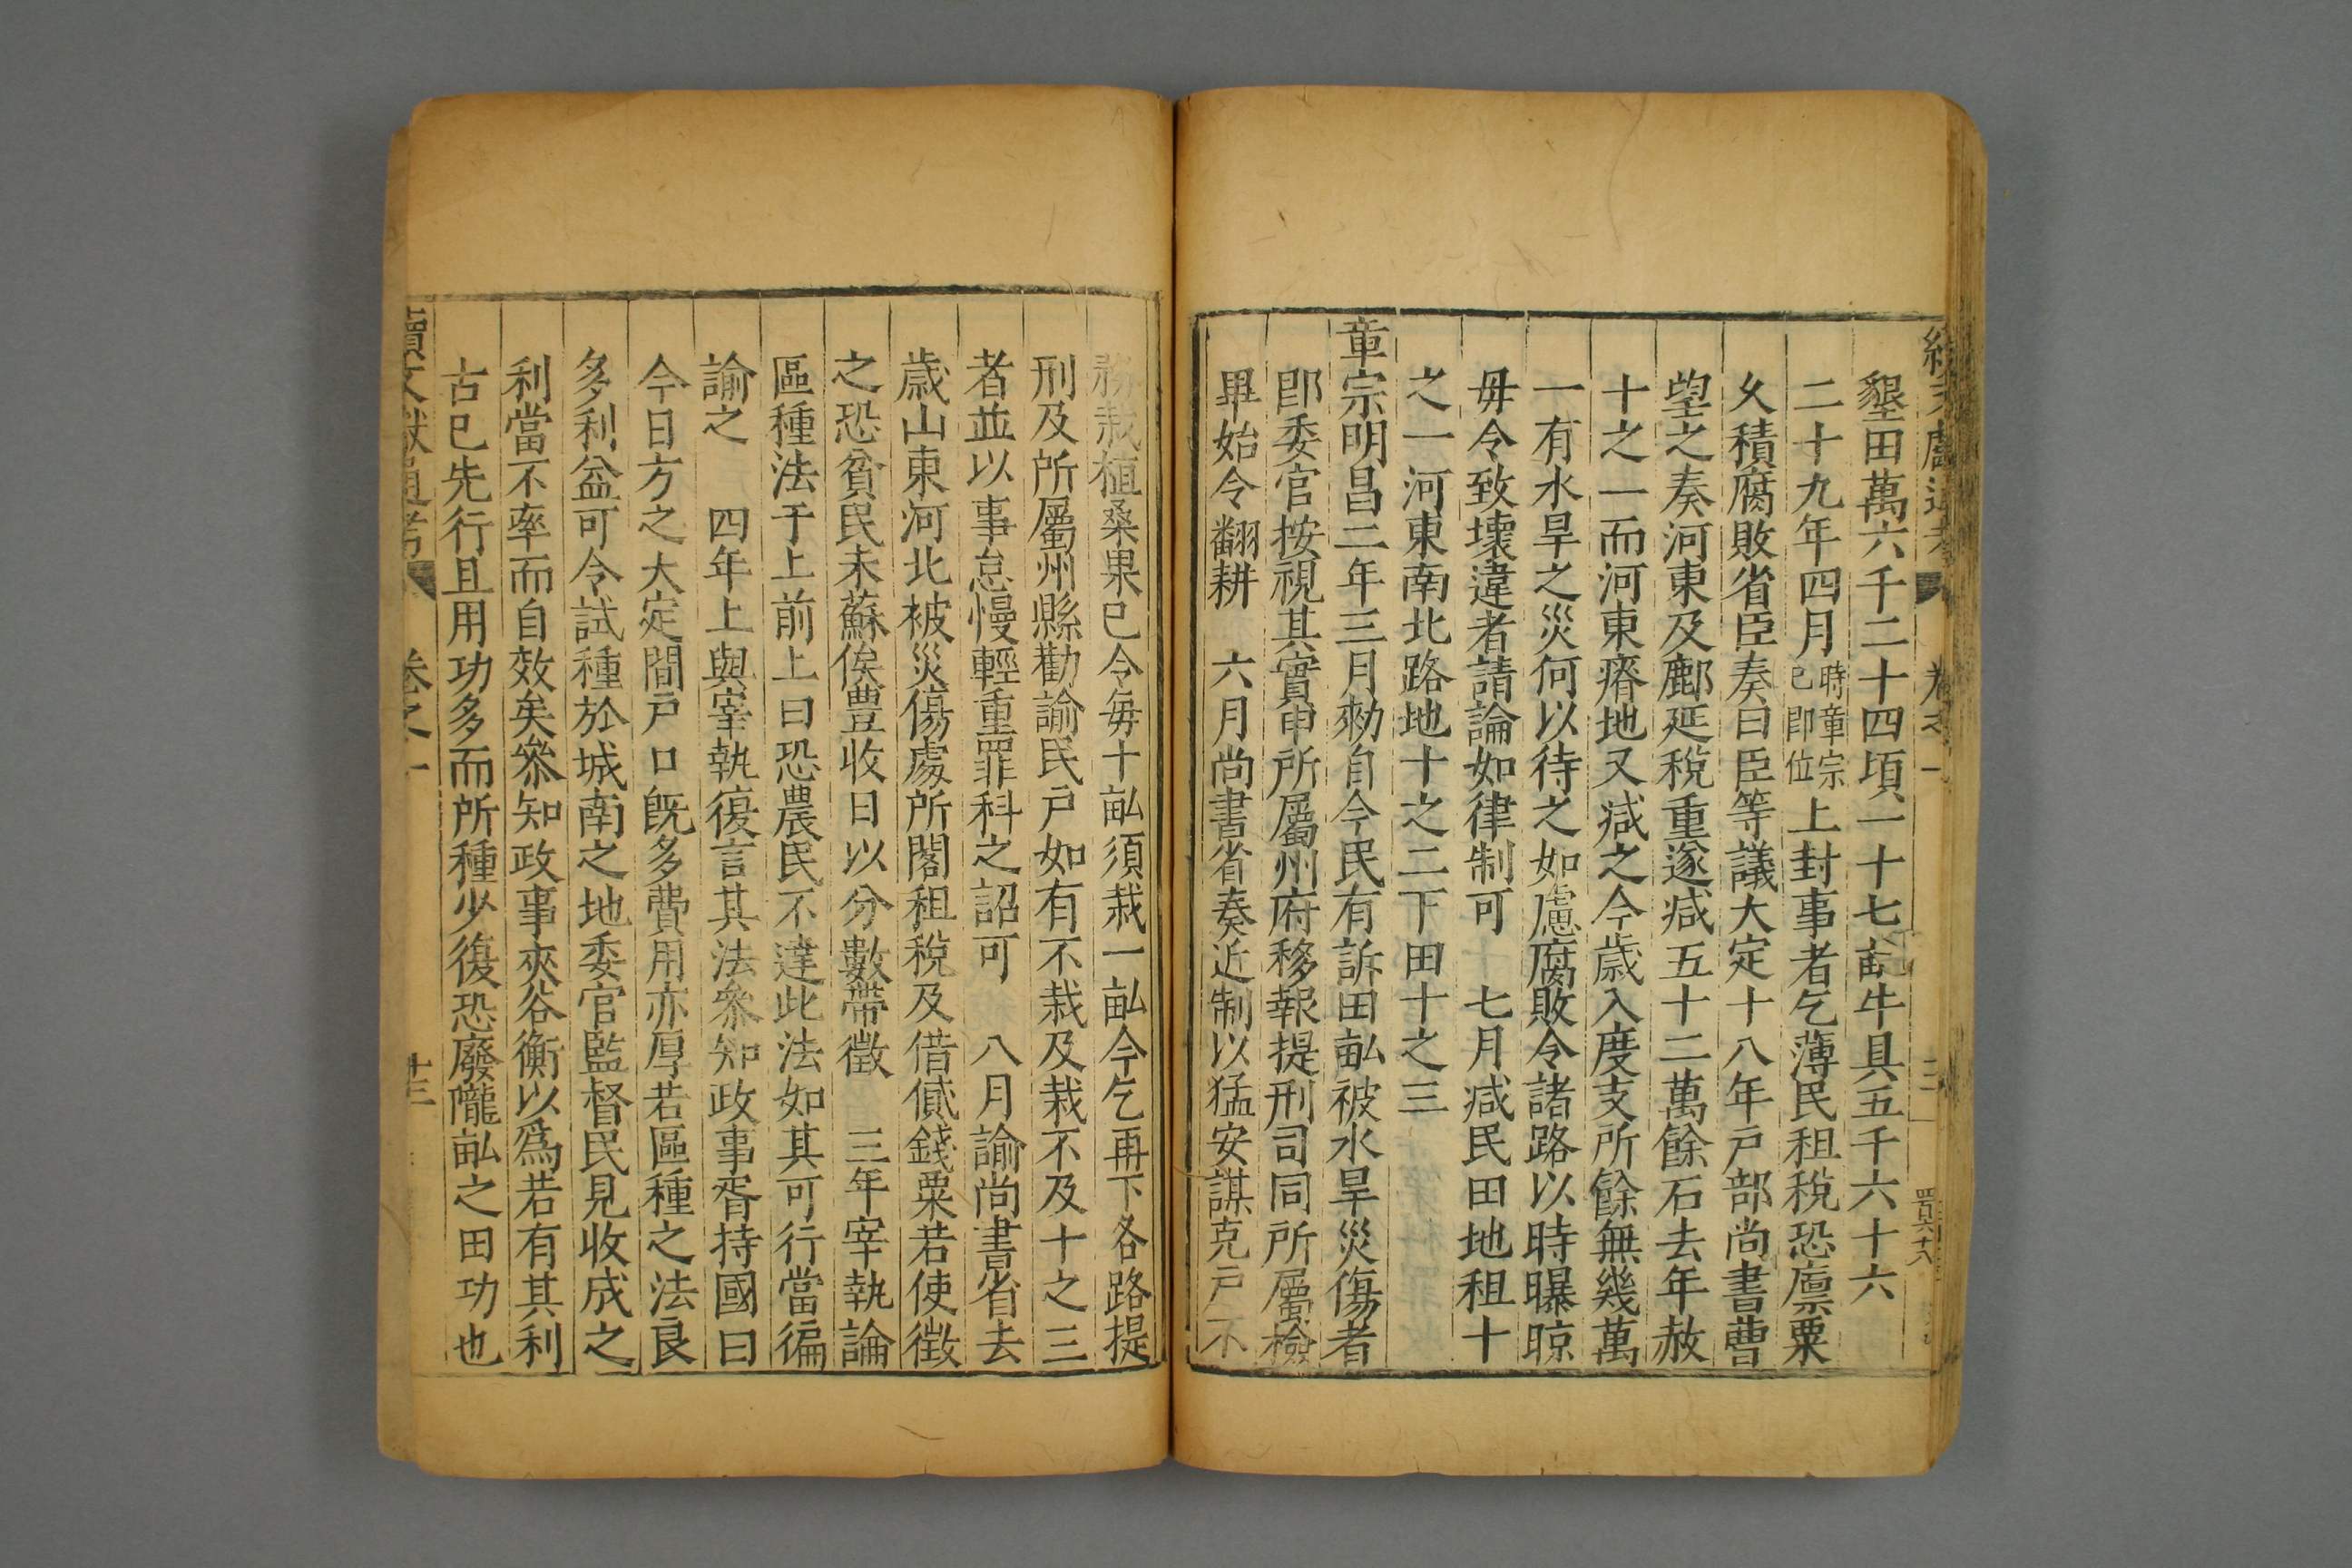 墾田萬六千二十四頃一十七畝牛具五千六十六
二十九年四月時章宗已即位上封事者乞薄民租稅恐廩粟
久積腐敗省臣奏曰臣等議大定十八年戶部尚書曹
望之奏河東及鄜延稅重遂减五十二萬餘石去年赦
十之一而河東瘠地又减之今歲入度支所餘無幾萬
一有水旱之災何以待之如慮腐敗令諸路以時曝晾
毋令致壞違者請論如律制可 七月减民田地租十
之一河東南北路地十之二下田十之三
章宗明昌二年三月勑自今民有訴田畆被水旱災傷者
卽委官按視其實申所屬州府移報提刑司同所屬檢
畢始令翻耕 六月尚書省奏近制以猛安謀克戶不
務栽植桑果已令每十畆須栽一畆今乞再下各路提
刑及所屬州縣勸諭民戶如有不栽及栽不及十之三
者並以事怠慢輕重罪科之詔可 八月諭尚書省去
歲山東河北被災傷處所閣租稅及借貸錢粟若使徵
之恐貧民未蘇俟豐收日以分數帶徵 三年宰執論
區種法于上前上曰恐農民不達此法如其可行當徧
諭之 四年上與宰執復言其法叅知政事胥持國曰
今日方之大定間戶口旣多費用亦厚若區種之法良
多利益可令試種於城南之地委官監督民見收成之
利當不率而自效矣叅知政事夾谷衡以爲若有其利
古已先行且用功多而所種少復恐廢隴畆之田功也
續文獻通考 卷之一 十三